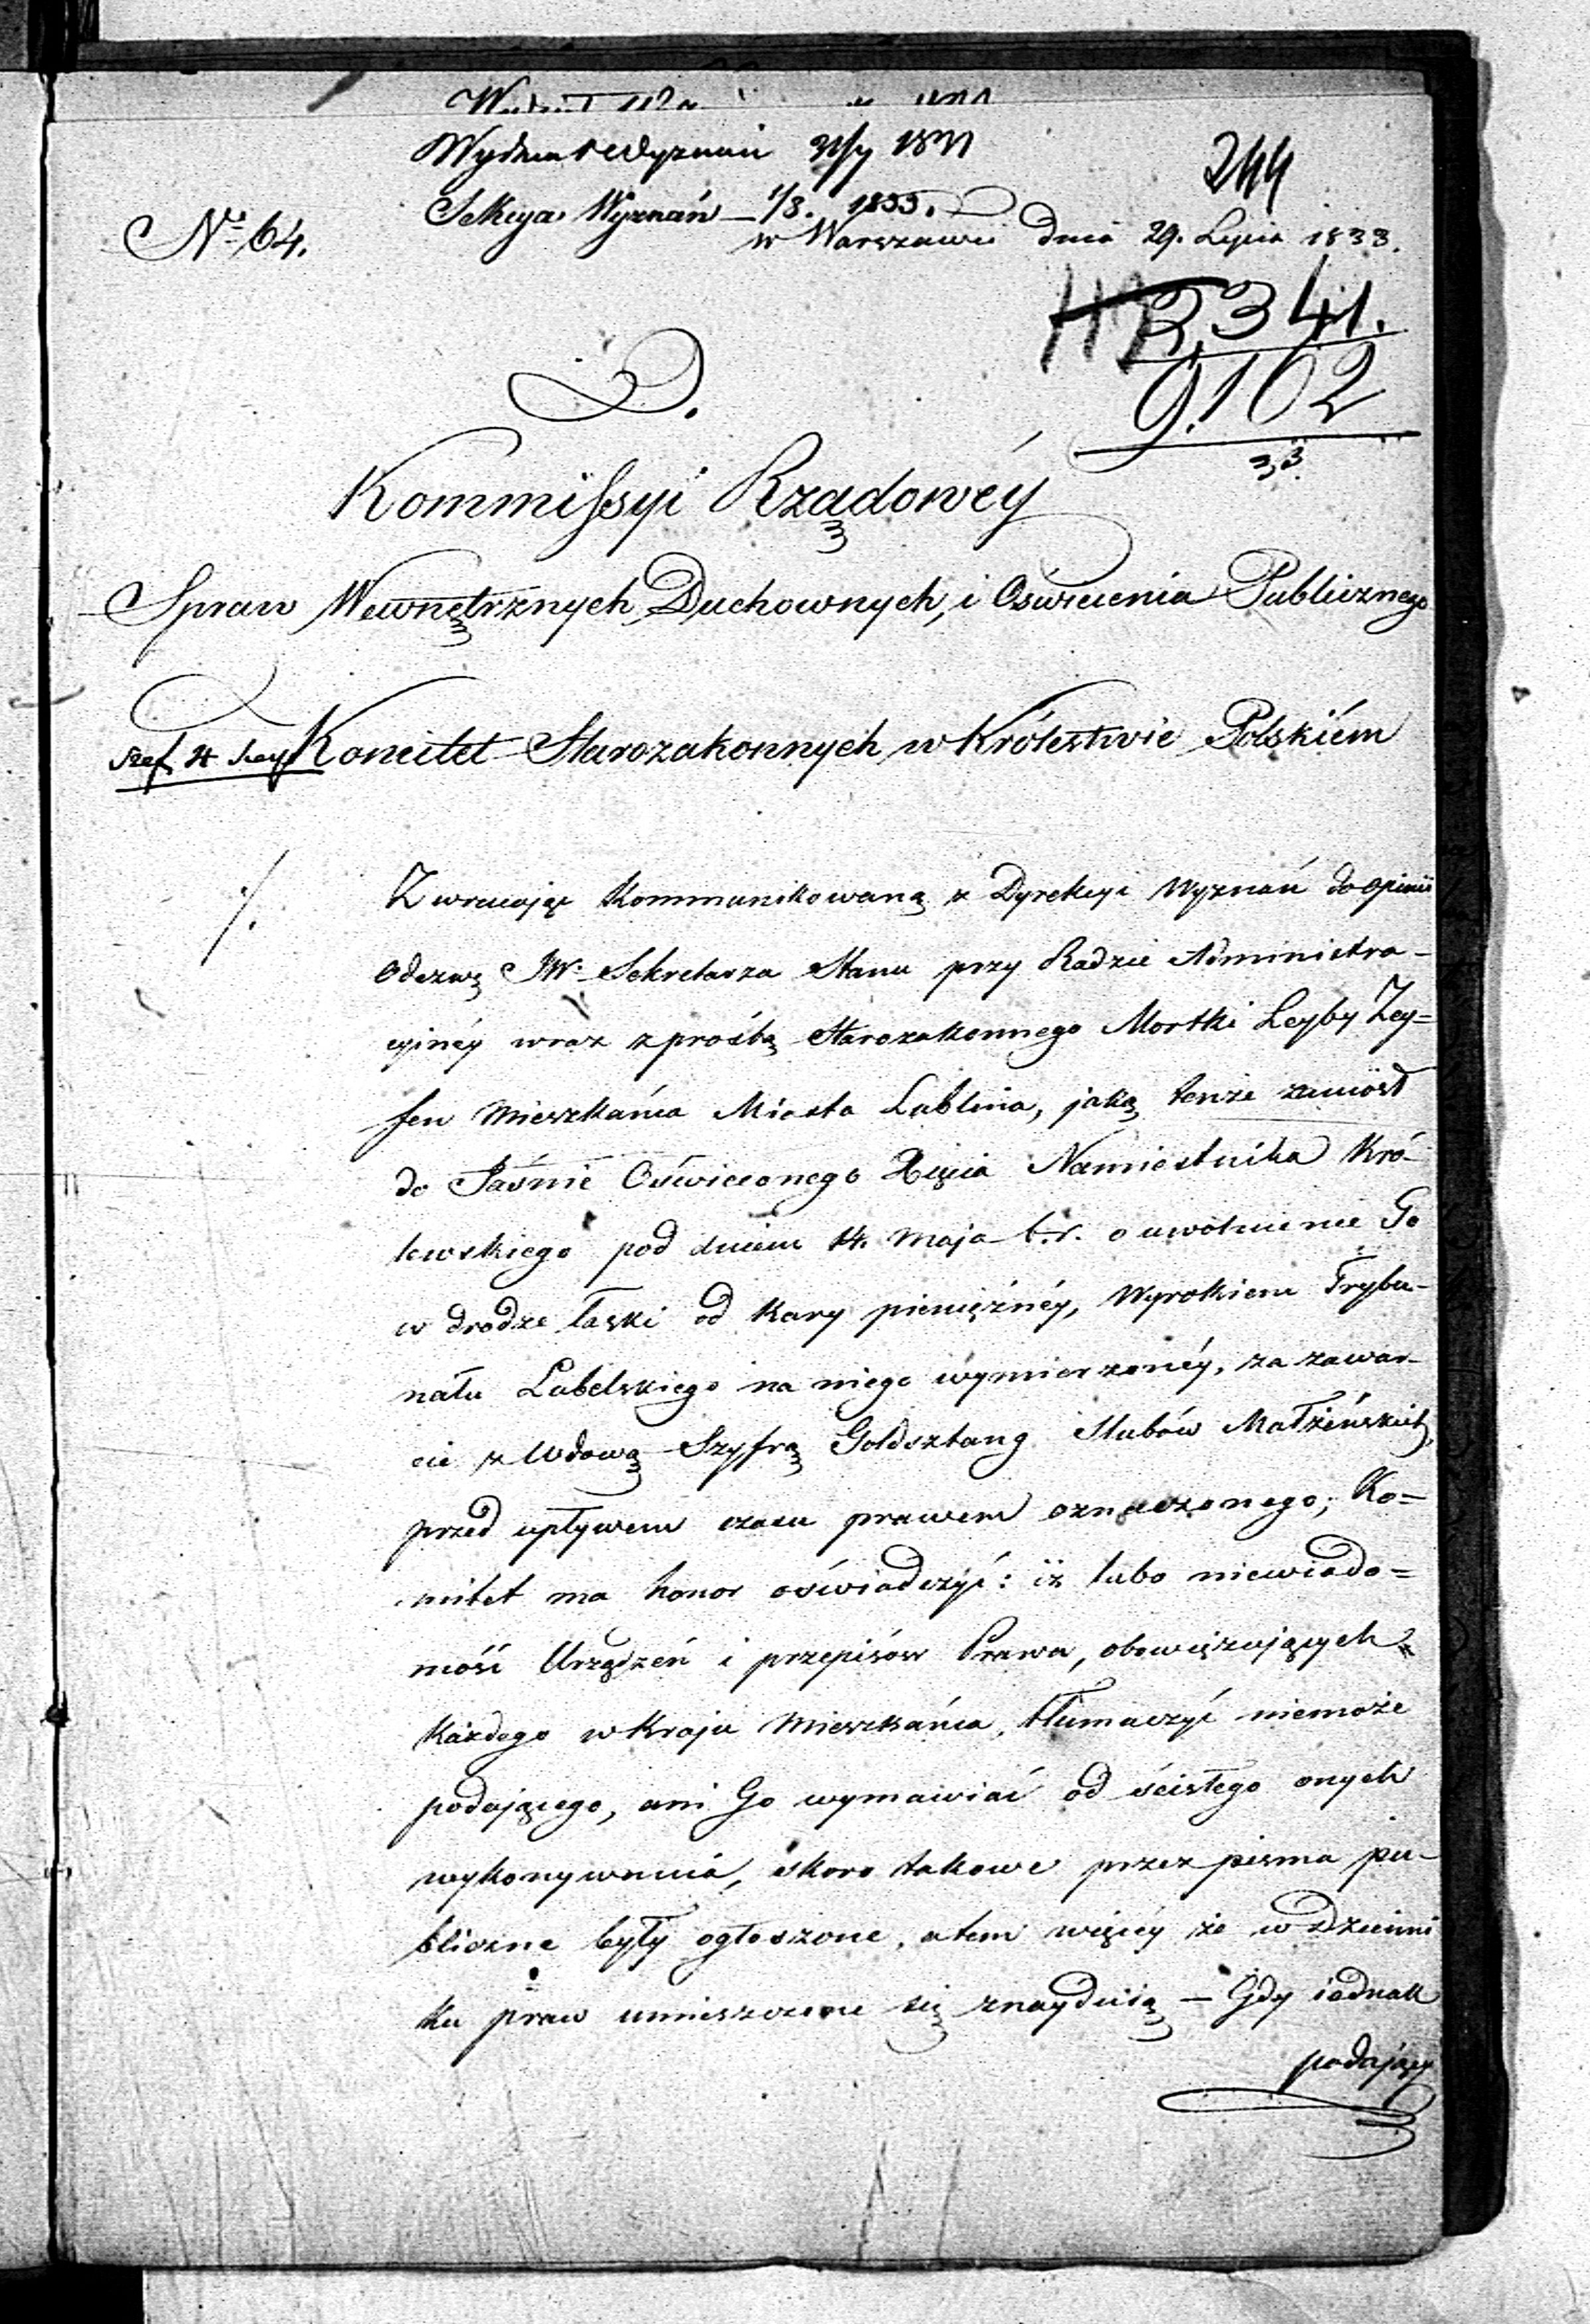 Wydział Wyznań 31/7 1833
244
Sekcya Wyznań – 1/8. 1833.
No 64.
w Warszawie dnia 29. Lipca 1833.
3,341.
9.102
33.
D.
Kommissyi Rządowéy
Spraw Wewnętrznych Duchownych, i Oświecenia Publicznego
Komitet Starozakonnych w Królestwie Polskiém
Zwracając kommunikowaną z Dyrekcyi Wyznań do opinii
Odezwę JW. Sekretarza Stanu przy Radzie Administra-
cyinéy wraz z prośbą Starozakonnego Mortki Leyby Zey=
fen Mieszkańca Miasta Lublina, jaką tenże zaniósł
do Jaśnie Oświeconego Xięcia Namiestnika Kró-
lewskiego pod dniem 14. Maja b.r. o uwolnienie Go
w drodze łaski od kary pieniężnéy, Wyrokiem Trybu-
nału Lubelskiego na niego wymierzonéy, za zawar-
cie z Wdową Szyfrą Goldsztang Slubów Małżeńskich,
przed upływem czasu prawem oznaczonego; Ko=
mitet ma honor oświadczyć: iż lubo niewiado=
mość Urządzeń i przepisów Prawa, obowiązujących
każdego w Kraju Mieszkańca, tłumaczyć niemoże
podającego, ani Go wymawiać od ścisłego onych
wykonywania, skoro takowe przez pisma pu-
bliczne były ogłoszone, a tem więcéy że w Dzienni
ku praw umieszczone się znayduią – Gdy iednak
podający